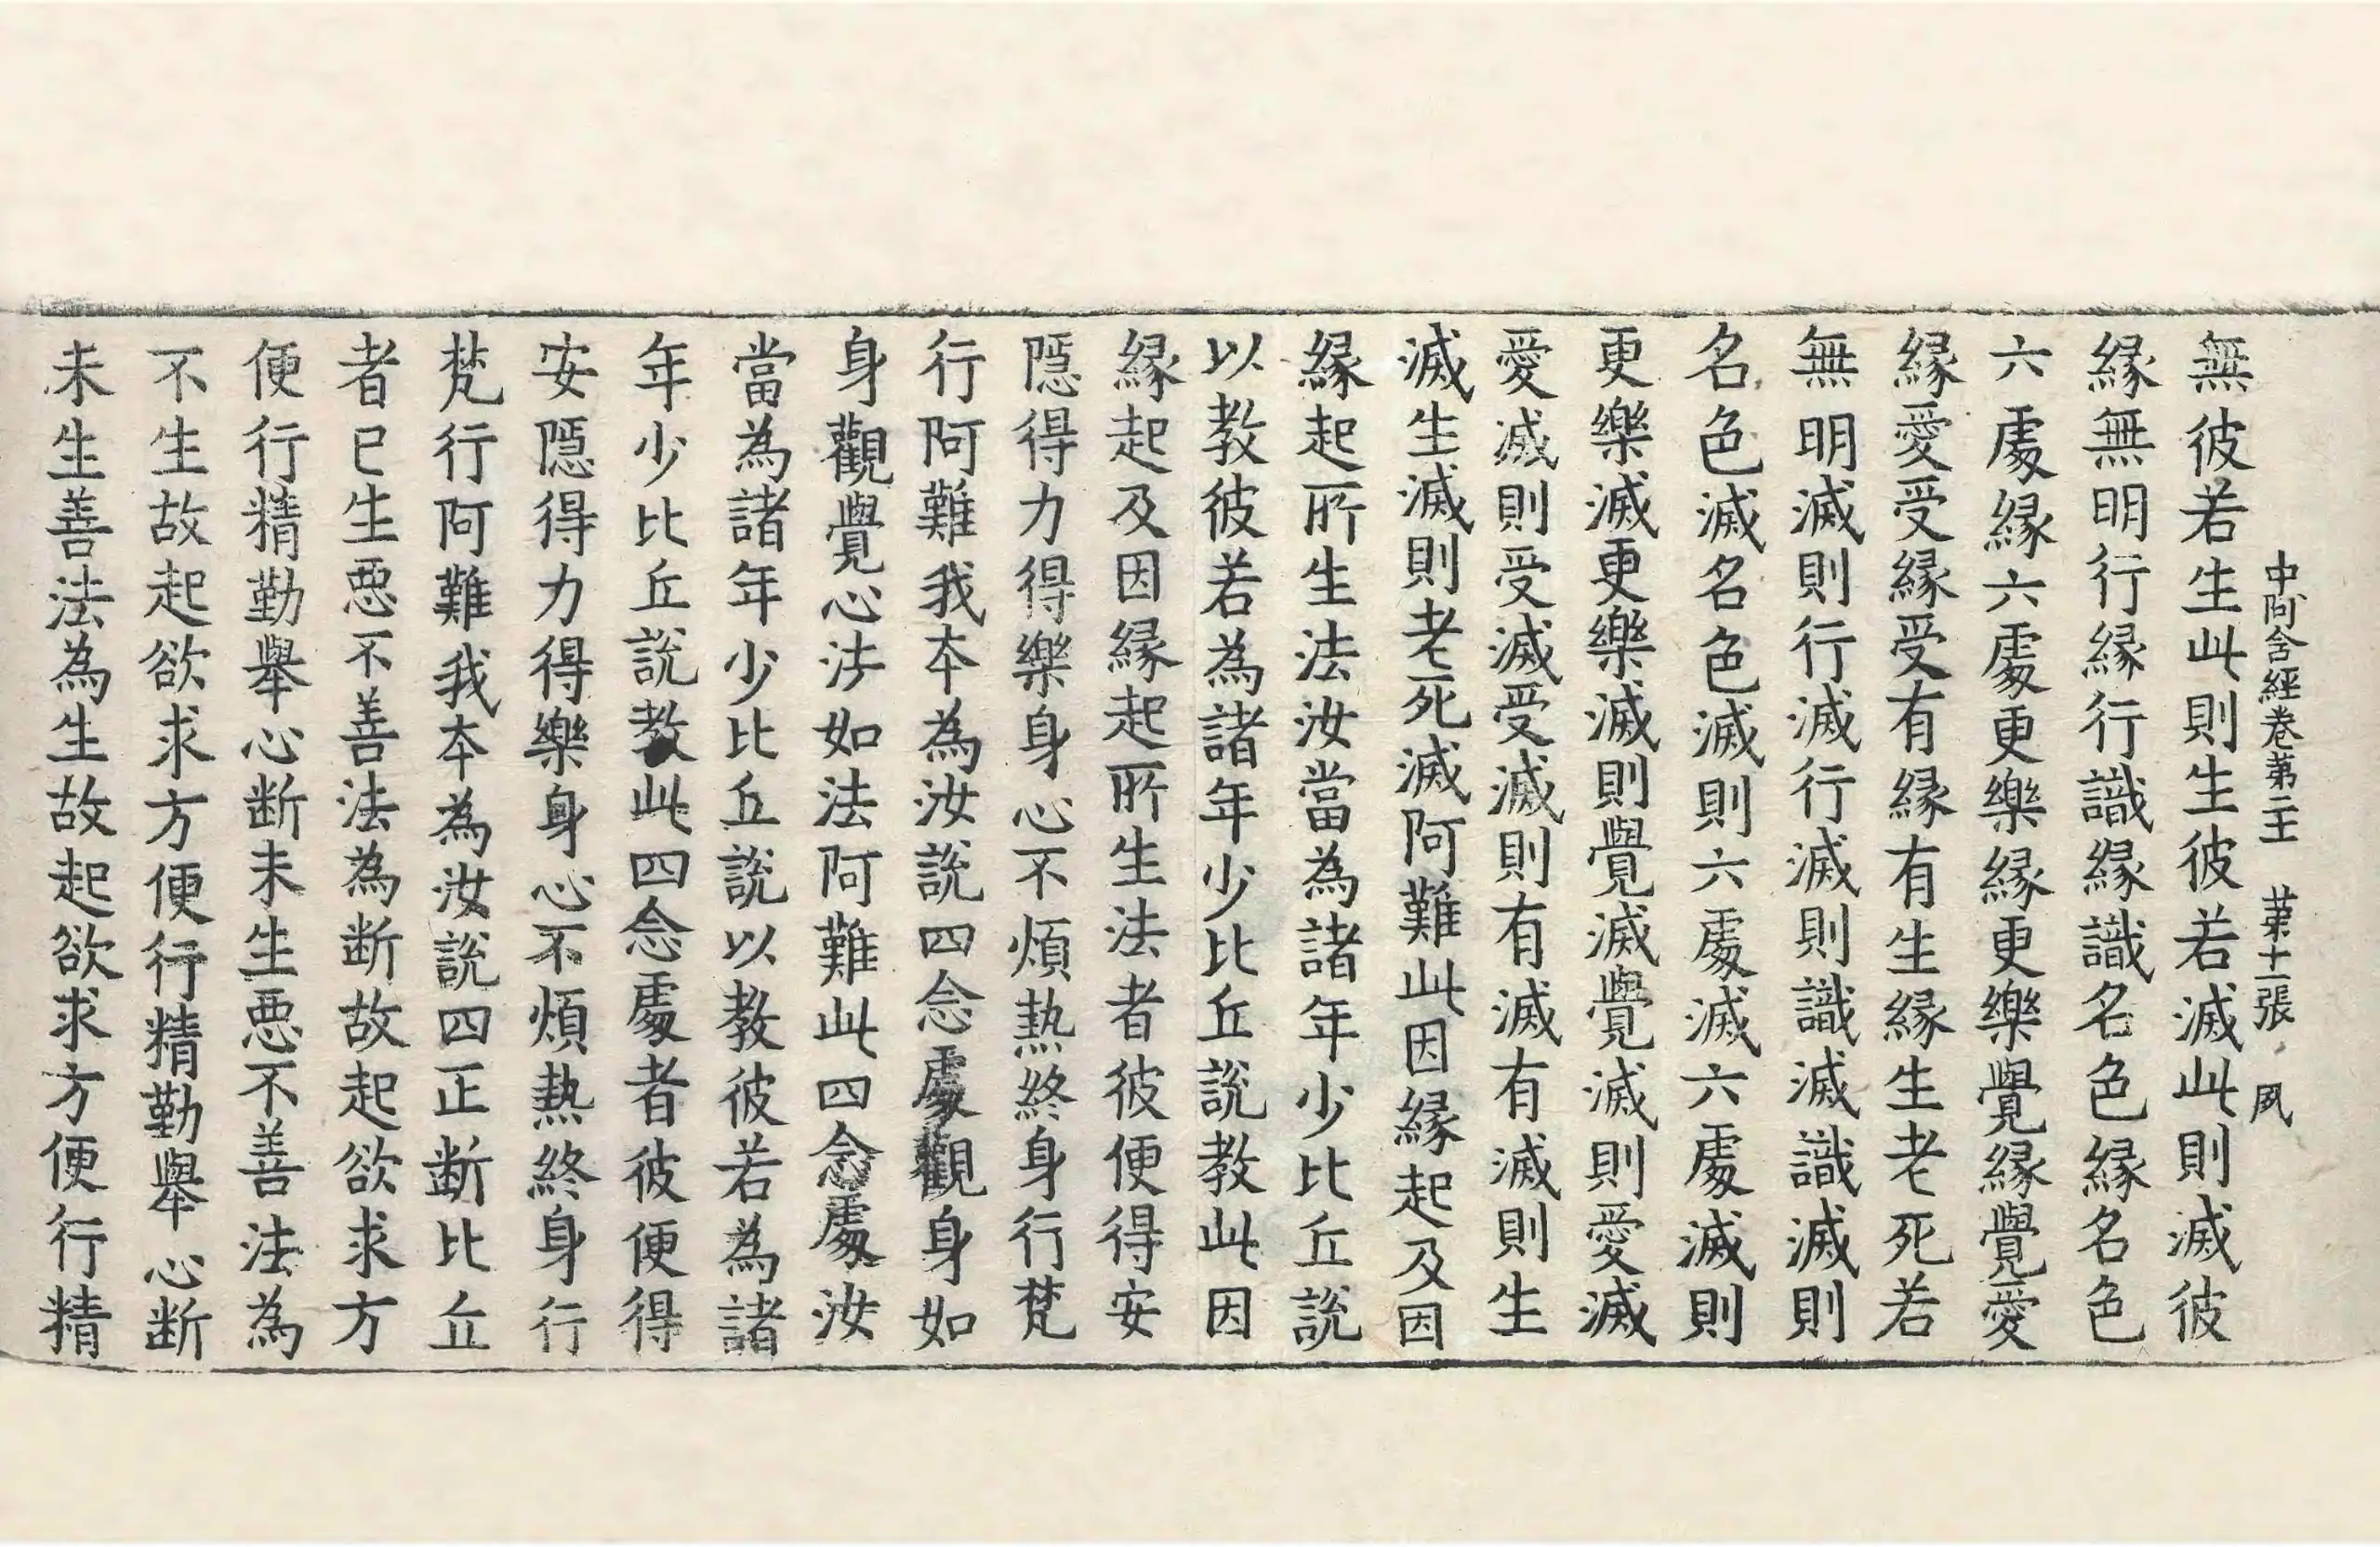 中阿含經卷第二十一 第十一張 夙
無彼若生此則生彼若滅此則滅彼
縁無明行縁行識縁識名色縁名色
六處縁六處更樂縁更樂覺縁覺愛
縁愛受縁受有縁有生縁生老死若
無明滅則行滅行滅則識滅識滅則
名色滅名色滅則六處滅六處滅則
更樂滅更樂滅則覺滅覺滅則愛滅
愛滅則受滅受滅則有滅有滅則生
滅生滅則老死滅阿難此因縁起及因
縁起所生法汝當為諸年少比丘說
以教彼若為諸年少比丘說教此因
縁起及因縁起所生法者彼便得安
隱得力得樂身心不煩熱終身行梵
行阿難我本為汝說四念處觀身如
身觀覺心法如法阿難此四念處汝
當為諸年少比丘說以教彼若為諸
年少比丘說教此四念處者彼便得
安隱得力得樂身心不煩熱終身行
梵行阿難我本為汝說四正断比丘
者已生惡不善法為断故起欲求方
便行精勤舉心断未生惡不善法為
不生故起欲求方便行精勤舉心断
未生善法為生故起欲求方便行精